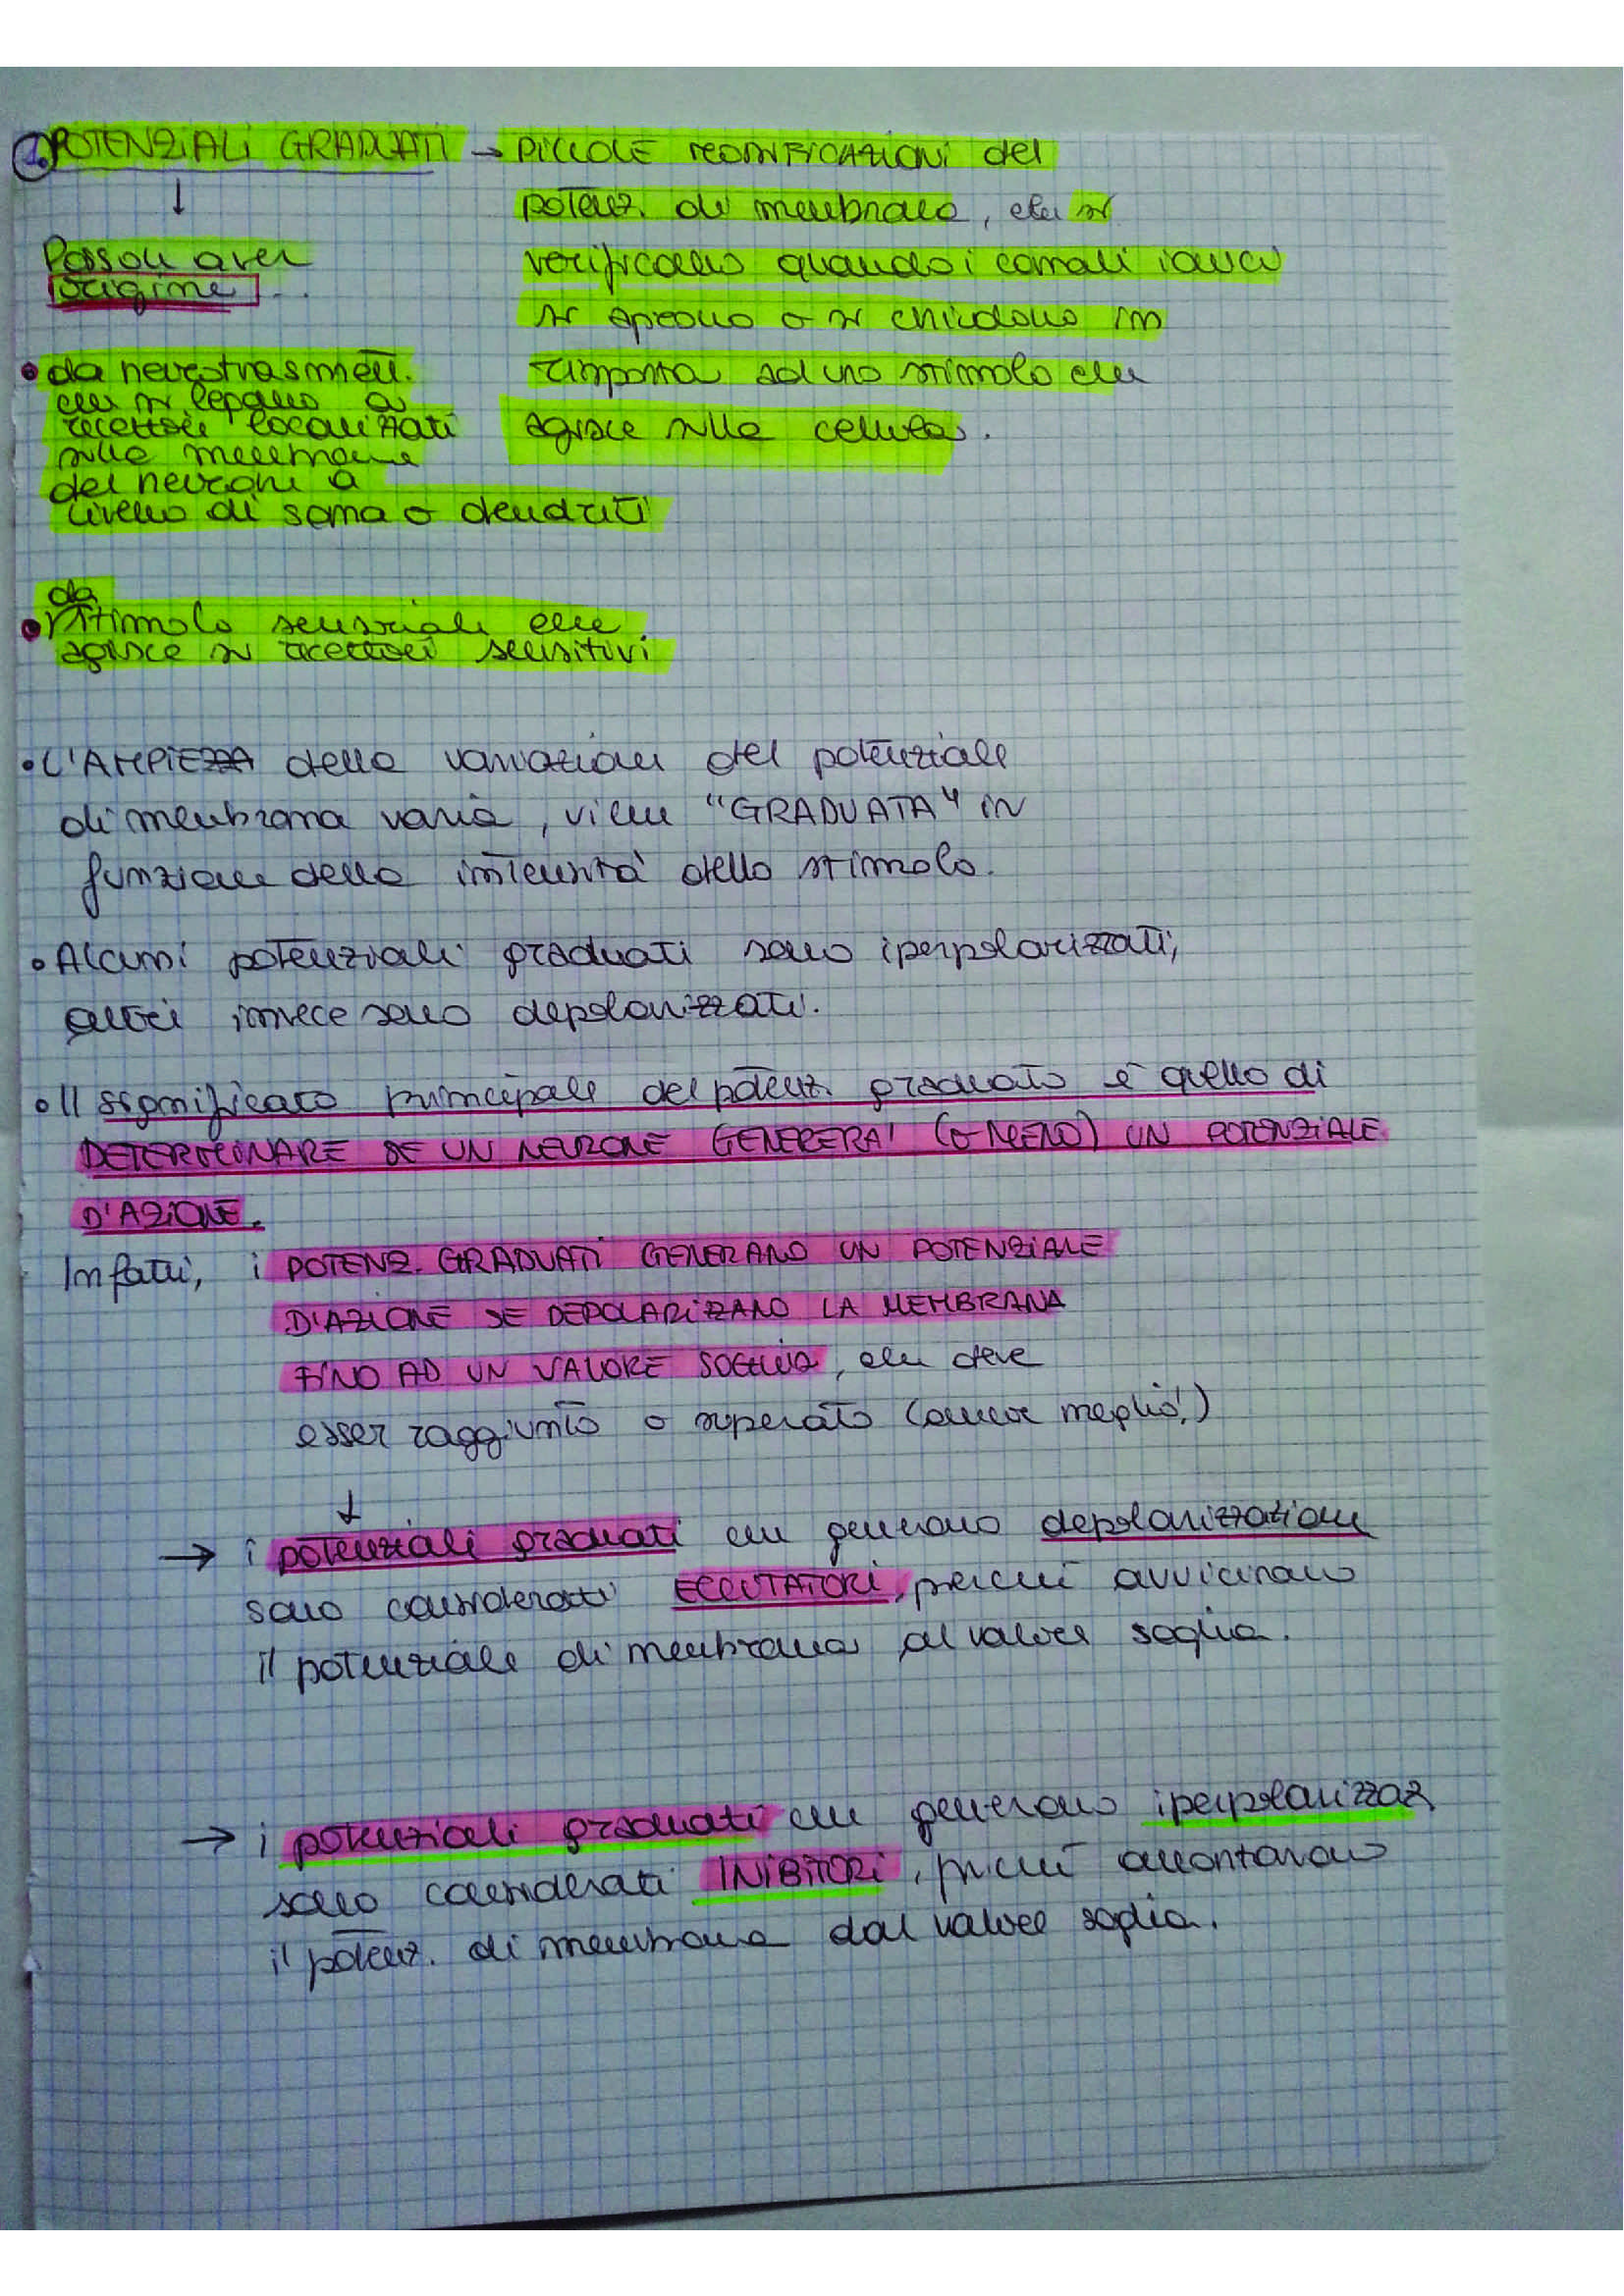 1. POTENZIALI GRADUATI → PICCOLE MODIFICAZIONI del
potenz. di membrana, che si
verificano quando i canali ionici
si aprono o si chiudono in
risposta ad uno stimolo che
agisce sulla cellula.
↓
Posson aver
origine
• da neurotrasmett.
che si legano a
recettori localizzati
sulla membrana
dei neuroni a
livello di soma o dendriti
da
• stimolo sensoriale che
agisce su recettori sensitivi
• L'AMPIEZZA della variazione del potenziale
di membrana varia, viene "GRADUATA" IN
funzione della intensità dello stimolo.
• Alcuni potenziali graduati sono iperpolarizzati,
altri invece sono depolarizzati.
• Il significato principale del potenz. graduato è quello di
DETERMINARE SE UN NEURONE GENERERA' (O MENO) UN POTENZIALE
D'AZIONE.
Infatti, i POTENZ. GRADUATI GENERANO UN POTENZIALE
D'AZIONE SE DEPOLARIZZANO LA MEMBRANA
FINO AD UN VALORE SOGLIA, che deve
esser raggiunto o superato (ancor meglio!)
↓
→ i potenziali graduati che generano depolarizzazione
sono considerati ECCITATORI, perché avvicinano
il potenziale di membrana al valore soglia.
→ i potenziali graduati che generano iperpolarizzaz
sono considerati INIBITORI, perché allontanano
il potenz. di membrana dal valore soglia.